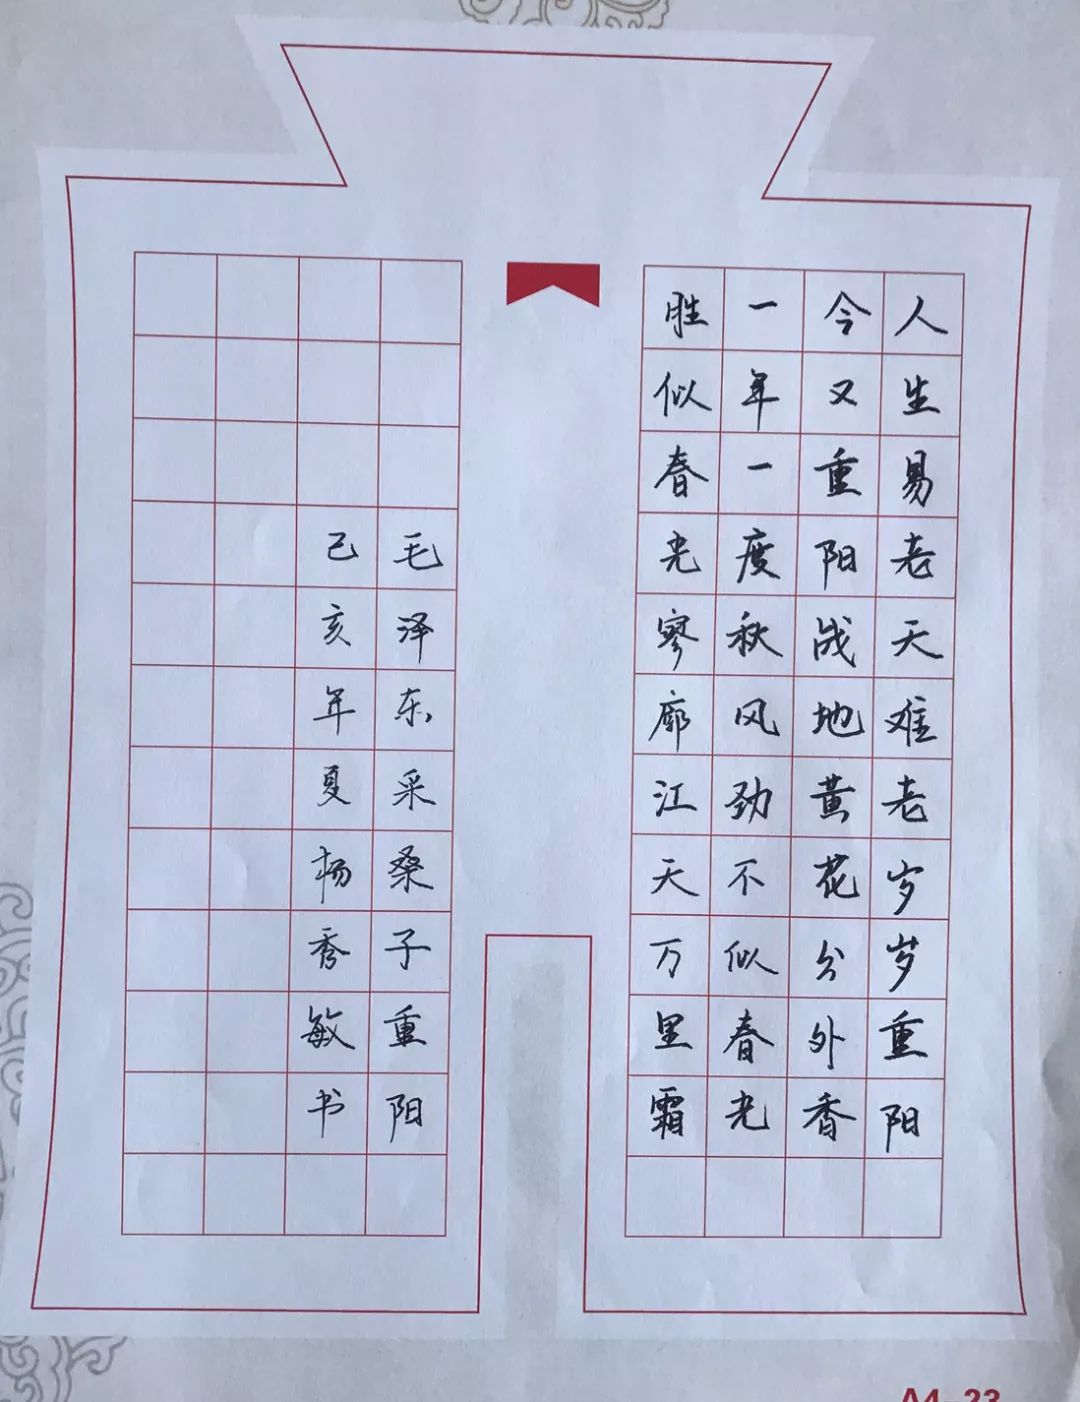 人生易老天难老岁岁重阳
今又重阳战地黄花分外香
一年一度秋风劲不似春光
胜似春光寥廓江天万里霜
毛泽东采桑子重阳
己亥年夏杨秀敏书
A4-23